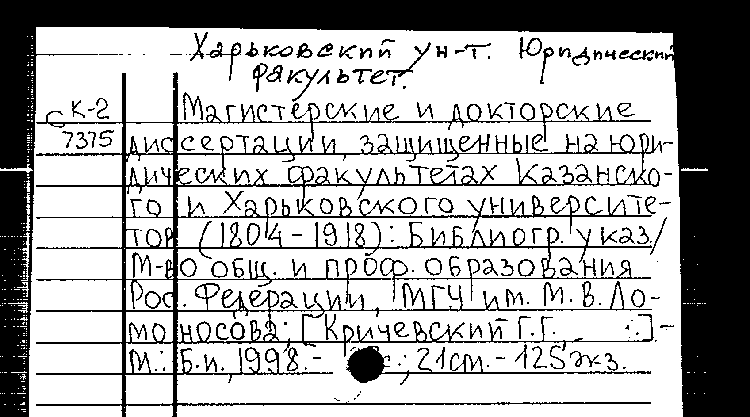 Харьковский ун-т. Юридический
факультет.
К-2 Магистерские и докторские
С
7375 диссертации, защищенные на юри-
дических факультетах Казанско-
го и Харьковского университе-
тов (1804-1918): Библиогр. указ./
М-во общ. и проф. образования
Рос. Федерации, МГУ им. М. В. Ло-
моносова; [Кричевский Г.Г. .]-
М.: Б.и., 1998.- с.; 21см.- 125экз.